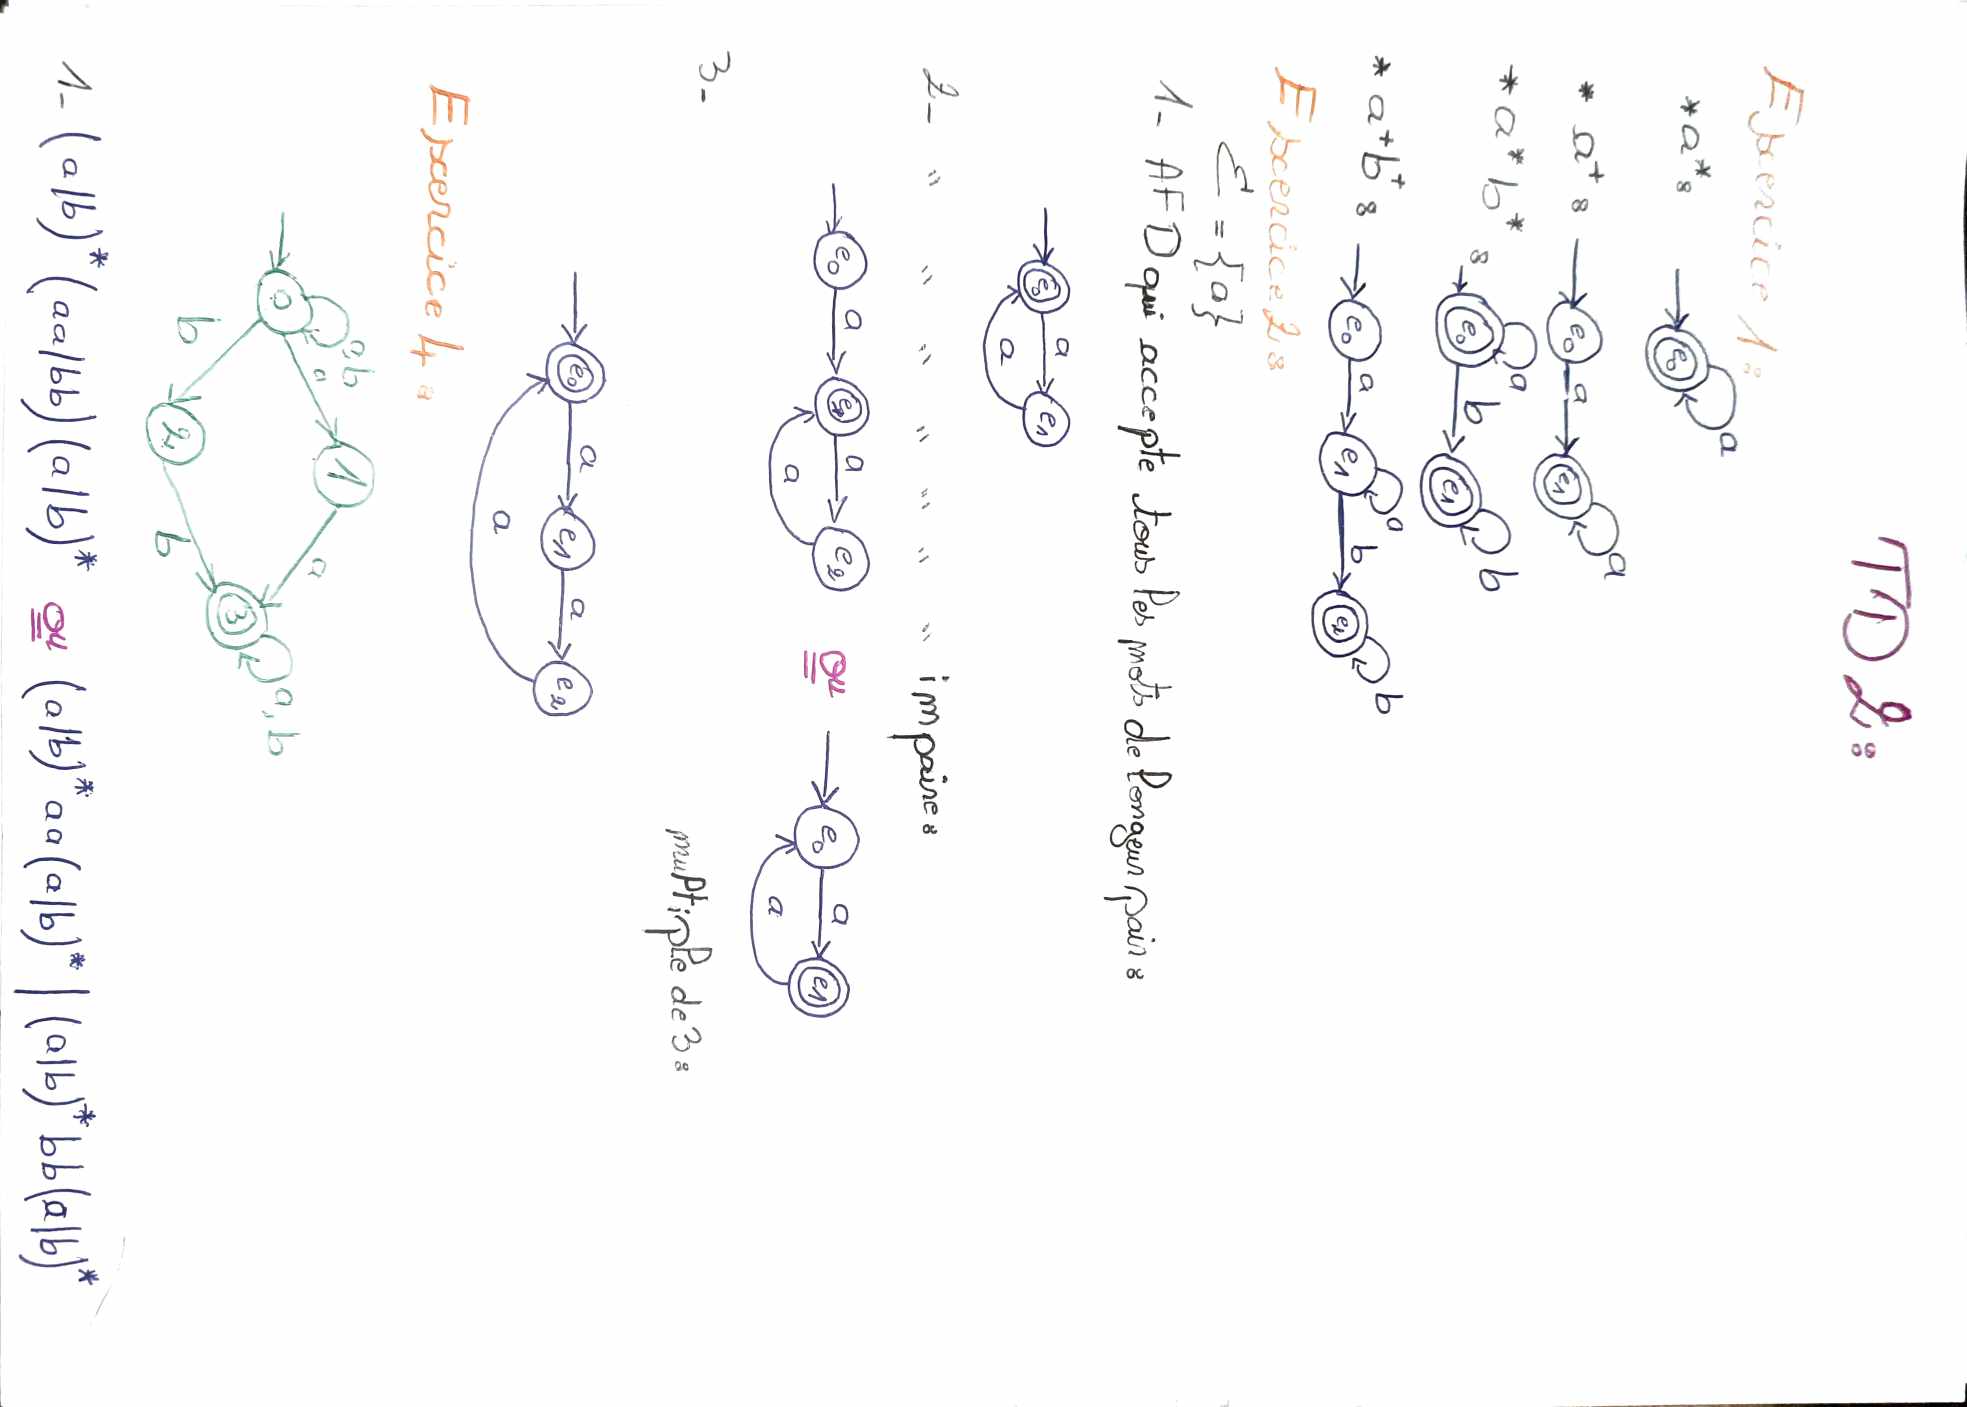 TD 2:
Exercice 1:
* a* :
e0 a
* a+ :
e0 a e1 a
* a* b* :
e0 a b e1 b
* a+ b+ :
e0 a e1 a b e2 b
Exercice 2:
Σ = {a}
1- AFD qui accepte tous les mots de longeur pair:
e0 a e1 a
2- " " " " " " " impaire:
e0 a e1 a e2 a
ou
e0 a e1 a
3- multiple de 3:
e0 a e1 a e2 a
Exercice 4:
0 a,b a 1 a
b 2 b 3 a,b
1- (a|b)* (aa|bb) (a|b)* ou (a|b)* aa (a|b)* | (a|b)* bb (a|b)*